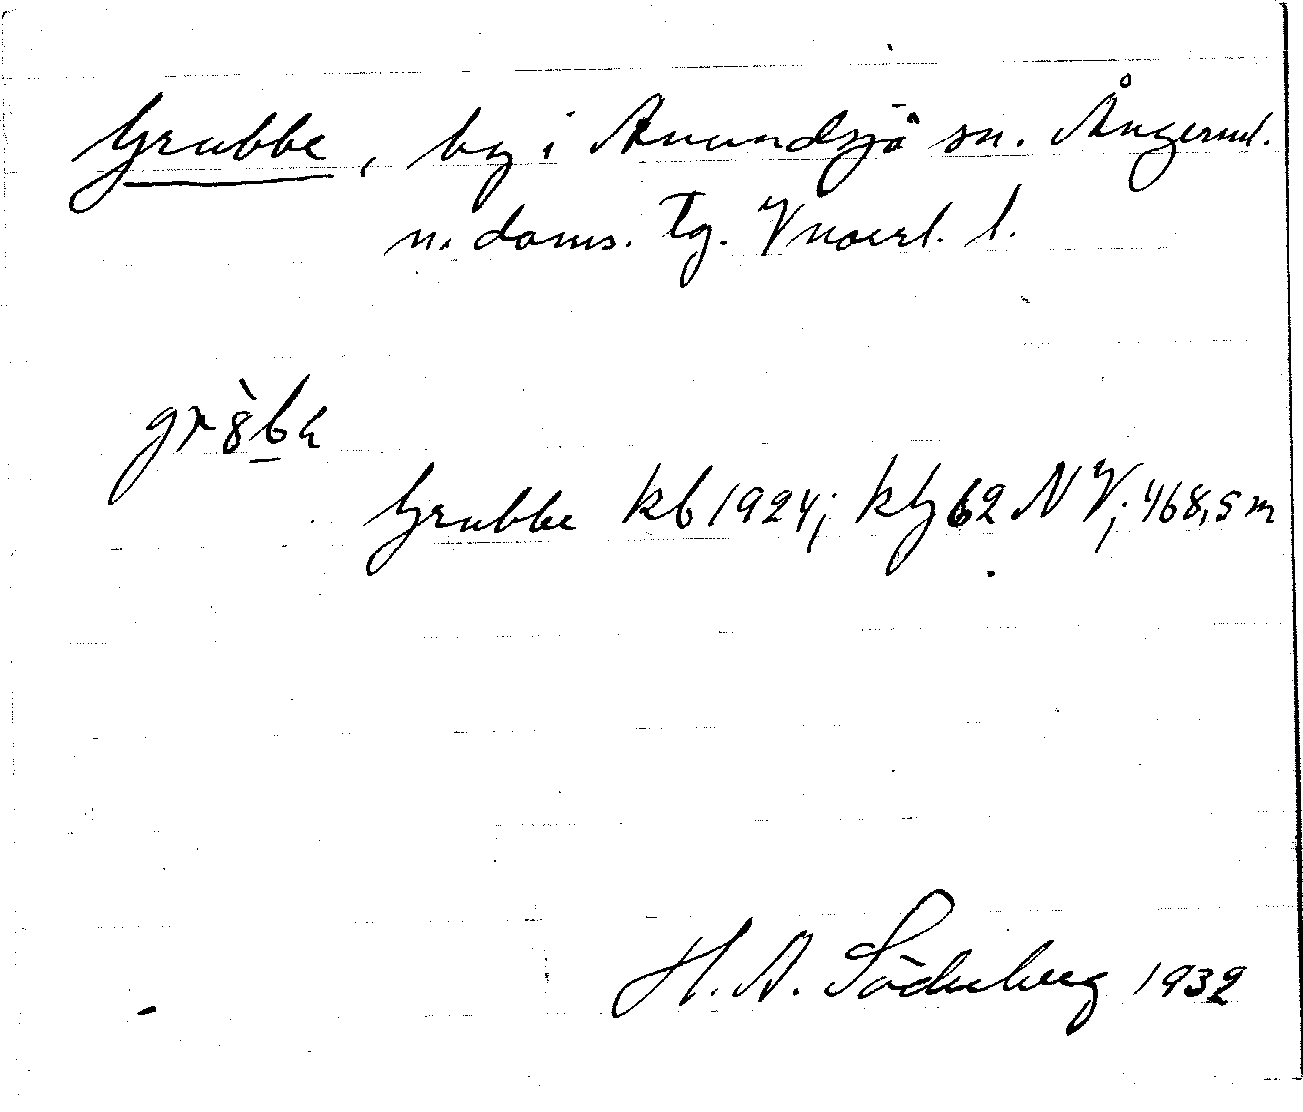 Grubbe, by i Anundsjö sn. Ångerml.
n. doms. tg. V norrl. l.
gr8̀b̲a
Grubbe kb 1924; kbg 62 NV; 468,5 m
H. A. Söderberg 1932